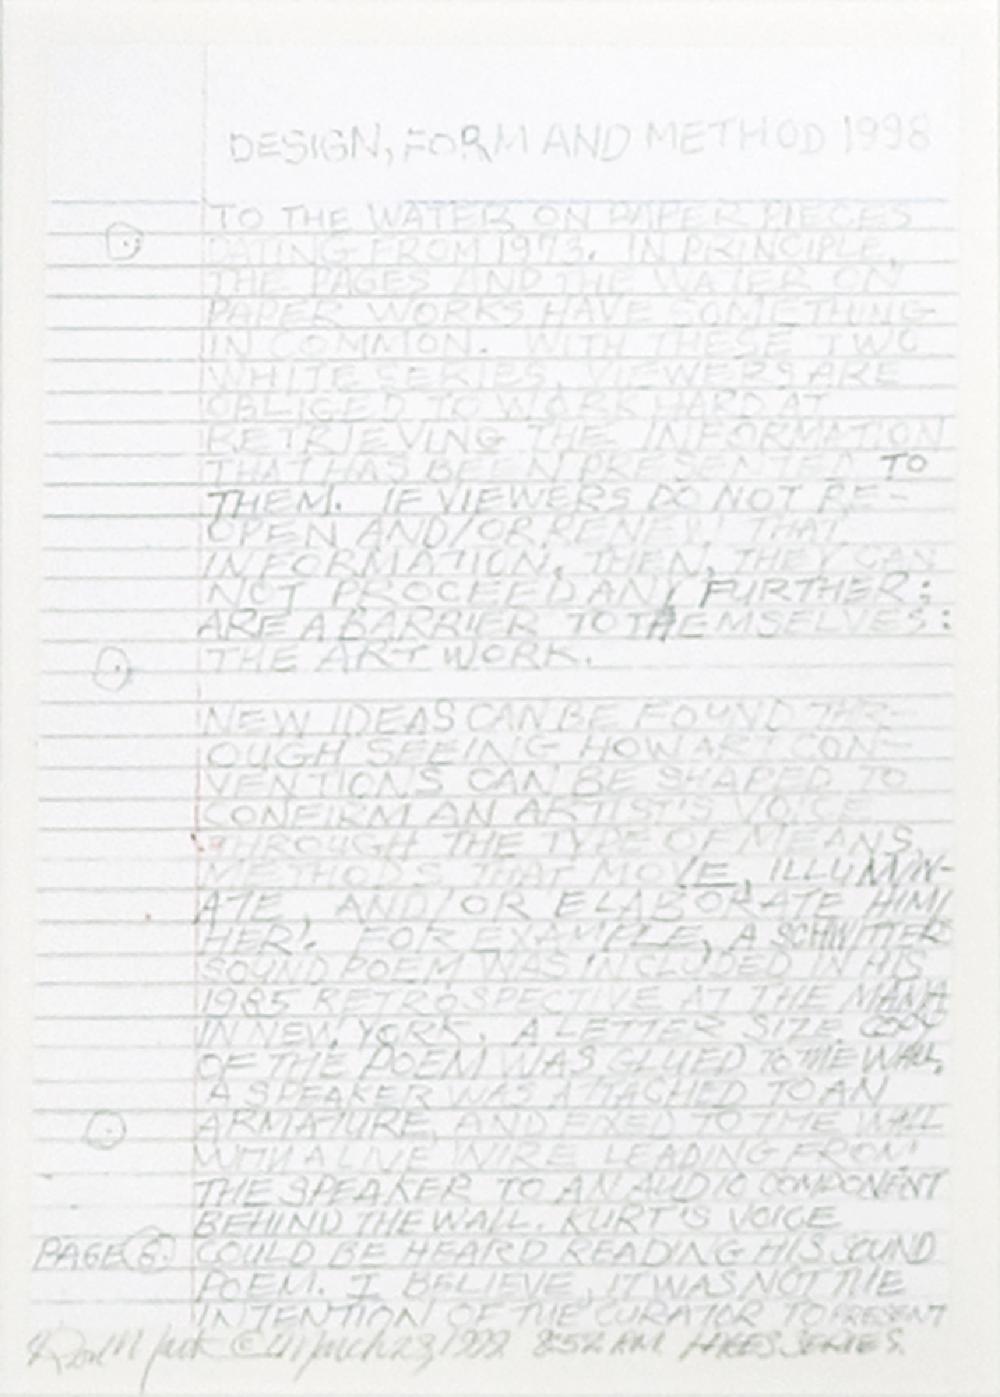 DESIGN, FORM AND METHOD 1998
TO THE WATER ON PAPER PIECES
DATING FROM 1973. IN PRINCIPLE,
THE PAGES AND THE WATER ON
PAPER WORKS HAVE SOMETHING
IN COMMON. WITH THESE TWO
WHITE SERIES, VIEWERS ARE
OBLIGED TO WORK HARD AT
RETRIEVING THE INFORMATION
THAT HAS BEEN PRESENTED TO
THEM. IF VIEWERS DO NOT RE-
OPEN AND/OR RENEW THAT
INFORMATION, THEN, THEY CAN
NOT PROCEED ANY FURTHER:
ARE A BARRIER TO THEMSELVES:
THE ART WORK.
NEW IDEAS CAN BE FOUND THR-
OUGH SEEING HOW ART CON-
VENTIONS CAN BE SHAPED TO
CONFIRM AN ARTIST'S VOICE
THROUGH THE TYPE OF MEANS,
METHODS THAT MOVE, ILLUMIN-
ATE, AND/OR ELABORATE HIM/
HER. FOR EXAMPLE, A SCHWITTERS
SOUND POEM WAS INCLUDED IN HIS
1985 RETROSPECTIVE AT THE
IN NEW YORK. A LETTER SIZE COPY
OF THE POEM WAS GLUED TO THE WALL,
A SPEAKER WAS ATTACHED TO AN
ARMATURE, AND FIXED TO THE WALL
WITH A LIVE WIRE LEADING FROM
THE SPEAKER TO AN AUDIO COMPONENT
BEHIND THE WALL. KURT'S VOICE
PAGE 6. COULD BE HEARD READING HIS SOUND
POEM. I BELIEVE, IT WAS NOT THE
INTENTION OF THE CURATOR TO PRESENT
© March 23, 1999 8:52 AM SERIES.